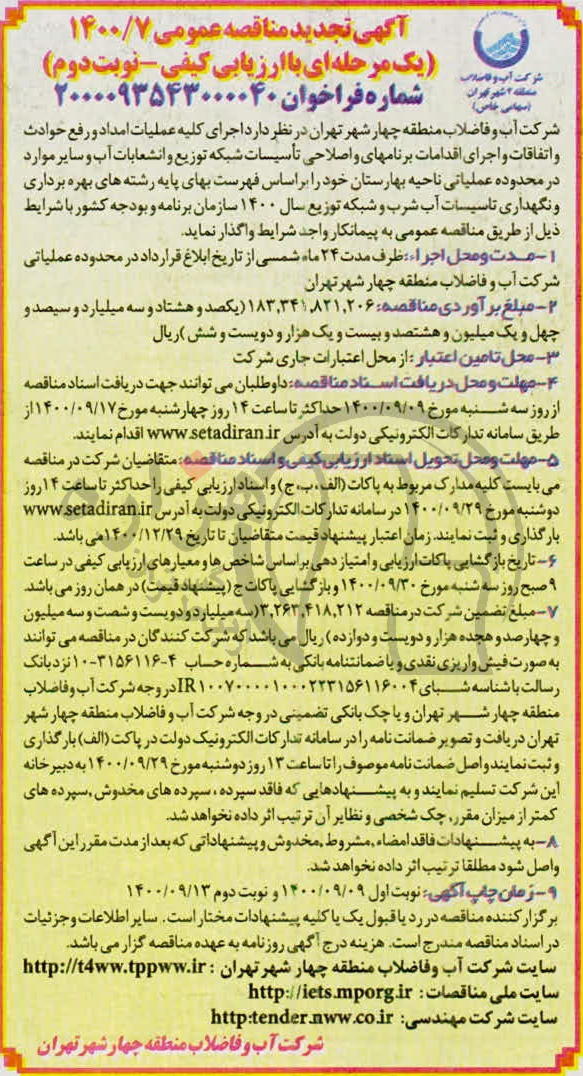 آگهی تجدید مناقصه عمومی ۱۴۰۰/۷
(یک مرحله‌ای با ارزیابی کیفی - نوبت دوم)
شماره فراخوان ۲۰۰۰۰۹۳۵۴۳۰۰۰۰۴۰
شرکت آب و فاضلاب
منطقه ۴ شهر تهران
(سهامی خاص)
شرکت آب و فاضلاب منطقه چهار شهر تهران در نظر دارد اجرای کلیه عملیات امداد و رفع حوادث
و اتفاقات و اجرای اقدامات برنامه‌ای و اصلاحی تأسیسات شبکه توزیع و انشعابات آب و سایر موارد
در محدوده عملیاتی ناحیه بهارستان خود را براساس فهرست بهای پایه رشته های بهره برداری
و نگهداری تاسیسات آب شرب و شبکه توزیع سال ۱۴۰۰ سازمان برنامه و بودجه کشور با شرایط
ذیل از طریق مناقصه عمومی به پیمانکار واجد شرایط واگذار نماید.
۱- مدت و محل اجراء: ظرف مدت ۲۴ ماه شمسی از تاریخ ابلاغ قرارداد در محدوده عملیاتی
شرکت آب و فاضلاب منطقه چهار شهر تهران
۲- مبلغ برآوردی مناقصه: ۱۸۳,۳۴۱,۸۲۱,۲۰۶ (یکصد و هشتاد و سه میلیارد و سیصد و
چهل و یک میلیون و هشتصد و بیست و یک هزار و دویست و شش) ریال
۳- محل تامین اعتبار: از محل اعتبارات جاری شرکت
۴- مهلت و محل دریافت اسناد مناقصه: داوطلبان می توانند جهت دریافت اسناد مناقصه
از روز سه شنبه مورخ ۱۴۰۰/۰۹/۰۹ حداکثر تا ساعت ۱۴ روز چهارشنبه مورخ ۱۴۰۰/۰۹/۱۷ از
طریق سامانه تدارکات الکترونیکی دولت به آدرس www.setadiran.ir اقدام نمایند.
۵- مهلت و محل تحویل اسناد ارزیابی کیفی و اسناد مناقصه: متقاضیان شرکت در مناقصه
می بایست کلیه مدارک مربوط به پاکات (الف، ب، ج) و اسناد ارزیابی کیفی را حداکثر تا ساعت ۱۴ روز
دوشنبه مورخ ۱۴۰۰/۰۹/۲۹ در سامانه تدارکات الکترونیکی دولت به آدرس www.setadiran.ir
بارگذاری و ثبت نمایند. زمان اعتبار پیشنهاد قیمت متقاضیان تا تاریخ ۱۴۰۰/۱۲/۲۹ می باشد.
۶- تاریخ بازگشایی پاکات ارزیابی و امتیاز دهی براساس شاخص ها و معیارهای ارزیابی کیفی در ساعت
۹ صبح روز سه شنبه مورخ ۱۴۰۰/۰۹/۳۰ و بازگشایی پاکات ج (پیشنهاد قیمت) در همان روز می باشد.
۷- مبلغ تضمین شرکت در مناقصه ۳,۲۶۳,۴۱۸,۲۱۲ (سه میلیارد و دویست و شصت و سه میلیون
و چهارصد و هجده هزار و دویست و دوازده) ریال می باشد که شرکت کنندگان در مناقصه می توانند
به صورت فیش واریزی نقدی و یا ضمانتنامه بانکی به شماره حساب ۴-۳۱۵۶۱۱۶-۱۰ نزد بانک
رسالت با شناسه شبای IR۱۰۰۷۰۰۰۰۱۰۰۰۲۲۳۱۵۶۱۱۶۰۰۴ در وجه شرکت آب و فاضلاب
منطقه چهار شهر تهران و یا چک بانکی تضمینی در وجه شرکت آب و فاضلاب منطقه چهار شهر
تهران دریافت و تصویر ضمانت نامه را در سامانه تدارکات الکترونیک دولت در پاکت (الف) بارگذاری
و ثبت نمایند و اصل ضمانت نامه موصوف را تا ساعت ۱۳ روز دوشنبه مورخ ۱۴۰۰/۰۹/۲۹ به دبیرخانه
این شرکت تسلیم نمایند و به پیشنهادهایی که فاقد سپرده، سپرده های مخدوش، سپرده های
کمتر از میزان مقرر، چک شخصی و نظایر آن ترتیب اثر داده نخواهد شد.
۸- به پیشنهادات فاقد امضاء، مشروط، مخدوش و پیشنهاداتی که بعد از مدت مقرر این آگهی
واصل شود مطلقا ترتیب اثر داده نخواهد شد.
۹- زمان چاپ آگهی: نوبت اول ۱۴۰۰/۰۹/۰۹ و نوبت دوم ۱۴۰۰/۰۹/۱۳
برگزار کننده مناقصه در رد یا قبول یک یا کلیه پیشنهادات مختار است. سایر اطلاعات و جزئیات
در اسناد مناقصه مندرج است. هزینه درج آگهی روزنامه به عهده مناقصه گزار می باشد.
سایت شرکت آب و فاضلاب منطقه چهار شهر تهران: http://t4ww.tppww.ir
سایت ملی مناقصات: http://iets.mporg.ir
سایت شرکت مهندسی: http:tender.nww.co.ir
شرکت آب و فاضلاب منطقه چهار شهر تهران